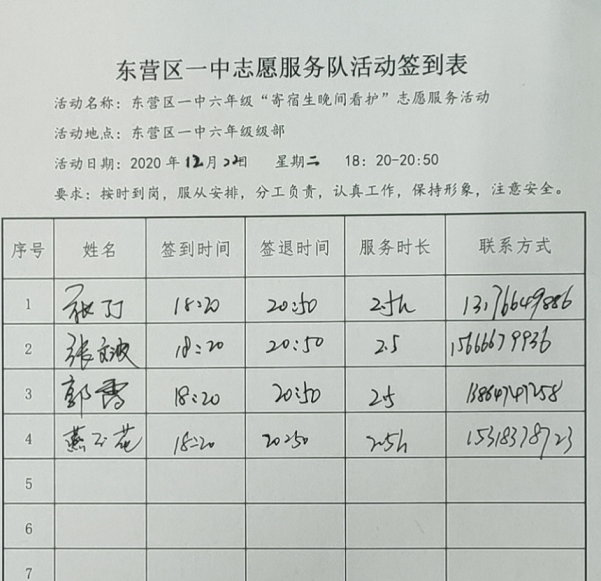 东营区一中志愿服务队活动签到表
活动名称：东营区一中六年级“寄宿生晚间看护”志愿服务活动
活动地点：东营区一中六年级级部
活动日期：2020 年 12月 22日 星期二 18：20-20:50
要求：按时到岗，服从安排，分工负责，认真工作，保持形象，注意安全。
序号 姓名 签到时间 签退时间 服务时长 联系方式
1 18:20 20:50 2.5h 13176649886
2 张文波 18:20 20:50 2.5 15666679936
3 郭雪 18:20 20:50 2.5 13864747258
4 燕玉花 18:20 20:50 2.5h 15318378723
5
6
7